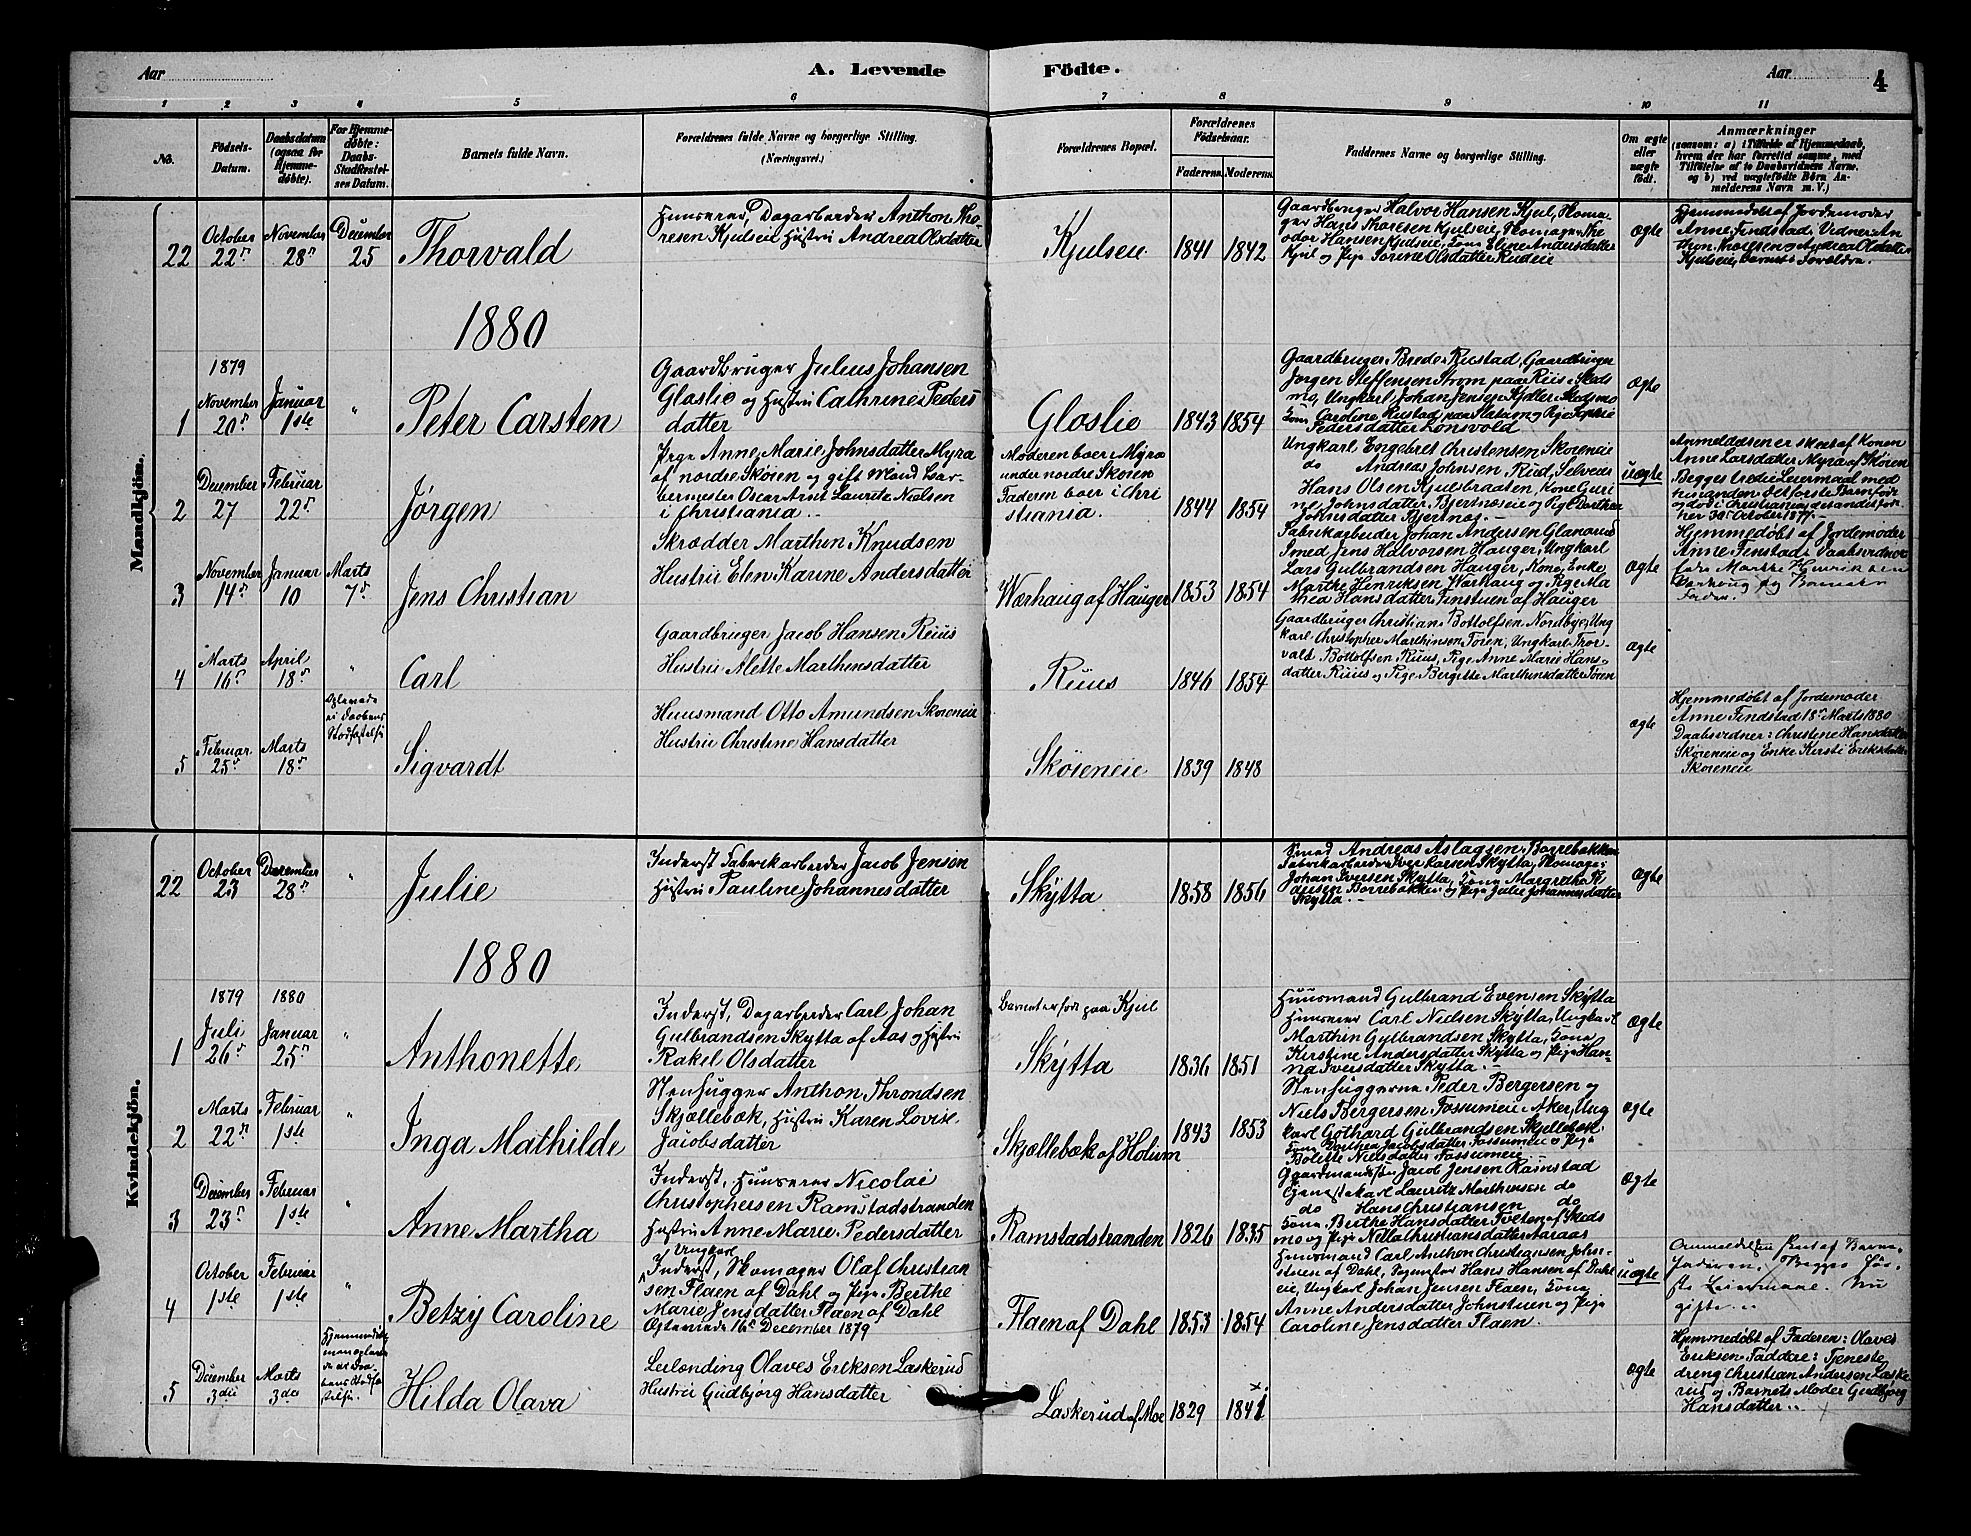 Aar
A. Levende Födte.
Aar
4
1 2 3 4 5 6 7 8 9 10 11
No.
Födsels-
Datum.
Daabsdatum
(ogsaa for
Hjemme-
døbte).
For Hjemme-
døbte:
Daabs-
Stadfæstel-
ses Datum.
Barnets fulde Navn.
Forældrenes fulde Navne og borgerlige Stilling.
(Næringsvei.)
Forældrenes Bopæl.
Forældrenes
Födselsaar.
Faderens.
Moderens.
Faddernes Navne og borgerlige Stilling.
Om ægte
eller
uægte
födt.
Anmærkninger
(saasom: a) i Tilfælde af Hjemmedaab,
hvem der har forrettet samme, med
Tilföielse af to Daabsvidners Navne,
og b) ved uægtefödte Börn An-
melderens Navn m. V.)
Mandkjön.
22
October
22
November
28
December
25
Thorvald
Huuseier, Dagarbeider Anthon Tho-
resen Kjulseie Hustru Andrea Olsdatter
Kjulseie
1841
1842
Gaardbruger Halvor Hansen Kjul, Skoma-
ger Hans Thoresen Kjulseie, Skomager The
odor Hansen Kjulseie, Kone Eline Andersdatter
Kjul og Pige Sorine Olsdatter Rudeie
ægte
Hjemmedøbt af Jordemoder
Anne Finstad, Vidner: An
thon Thoresen og Andrea Olsdatter
Kjulseie, Barnets Forældre.
1880
1
1879
November
20
Januar
1ste
"
Peter Carsten
Gaardbruger Julius Johansen
Gloslie og Hustru Cathrine Peders
datter
Gloslie
1843
1854
Gaardbruger Brede Rustad, Gaardbruger
Jørgen Steffensen Strøm paa Riis i Skeds
mo, Ungkarl Johan Jensen Kjeller Skedsmo
Kone Caroline Rustad paa Flatum og Pige Sophie
Pedersdatter Lønsvold
ægte
2
December
27
Februar
22
Jørgen
Pige Anne Marie Johnsdatter Myra
af nordre Skøien og gift Mand Bar-
bermester Oscar Arnt Lauritz Nielsen
i Christiania.
Moderen boer Myra
under nordre Skøien
Faderen boer i Chri
stiania.
1844
1854
Ungkarl Engebret Christensen Skøieneie
do Andreas Johnsen Rud, Selveier
Hans Olsen Kjulsbraaten, Kone Guri
ne Johnsdatter Bjertnæseie og Pige Dorthea
Johnsdatter Bjertnæs.
uægte
Anmeldelsen er skeet af Konen
Anne Larsdatter Myra af Skøien
Begges tredie Leiermaal med
hinanden det første Barn født
og død i Christiania det andet fød
her 30 October 1877.
3
November
14
Januar
10
Marts
7
Jens Christian
Skrædder Marthin Knudsen
Hustru Elen Karine Andersdatter
Wærhaug af Hauger
1853
1854
Fabrikarbeider Johan Andersen Glanerud
Smed Jens Halvorsen Hauger, Ungkarl
Lars Gulbrandsen Hauger, Kone, Enke
Marthe Henriksen Wærhaug og Pige Ma
thea Hansdatter Finstuen af Hauger
ægte
Hjemmedøbt af Jordemoder
Anne Finstad, Daabsvidner
fare Marthe Henriksen
Værhoug og Barnets
Fader.
4
Marts
16
April
18
"
Carl
Gaardbruger Jacob Hansen Ruus
Hustru Alette Marthinsdatter
Ruus
1846
1854
Gaardbruger Christian Bottolfsen Nordbye, Ung
karl Christopher Marthinsen Tøien, Ungkarl Thor-
vald Bottolfsen Ruus, Pige Anne Marie Hans-
datter Ruus og Pige Bergitte Marthinsdatter Tøien
ægte
5
Februar
25
Marts
18
Oplevede
ei Daabens
Stadfæstelse
Sigvardt
Huusmand Otto Amundsen Skøieneie
Hustru Christine Hansdatter
Skøieneie
1839
1848
ægte
Hjemmedøbt af Jordemoder
Anne Finstad 18 Marts 1880
Daabsvidner: Christine Hansdatter
Skøieneie og Enke Kirsti Eriksdatter
Skøieneie
Kvindekjön.
22
October
23
December
28
"
Julie
Inderst Fabrikarbeider Jacob Jenson
Hustru Pauline Johannesdatter
Skÿtta
1858
1856
Smed Andreas Aslagsen Borrebakken
Fabrikarbeider Iver Larsen Skÿtta, Skomager
Johan Iversen Skÿtta, Kone Margrethe Kl
ausen Borrebakken og Pige Julie Johannesdatter
Skÿtta.
ægte
1880
1
1879
Juli
26
1880
Januar
25
"
Anthonette
Inderst, Dagarbeider Carl Johan
Gulbrandsen Skÿtta af Aas og Hustru
Rakel Olsdatter
Barnet er født paa Kjul
Skÿtta
1836
1851
Huusmand Gulbrand Evensen Skÿtta
Huuseier Carl Nielsen Skÿtta, Ungkarl
Marthin Gulbrandsen Skÿtta, Kone
Kirstine Andersdatter Skÿtta og Pige Han-
na Iversdatter Skÿtta.
ægte
2
Marts
22
Februar
1ste
"
Inga Mathilde
Stenhugger Anthon Throndsen
Skjællebæk, Hustru Karen Lovise
Jacobsdatter
Skjællebæk af Holum
1843
1853
Stenhuggerne Peder Bergersen og
Niels Bergersen Fossumeie i Aker, Ung
karl Gothard Gulbrandsen Skjellebæk
Kone Dorthea Jacobsdatter Fossumeie og Pige
Bolette Nielsdatter Fossumeie.
ægte
3
December
23
Februar
1ste
"
Anne Martha
Inderst, Huuseier Nicolai
Christophersen Ramstadstranden
Hustru Anne Marie Pedersdatter
Ramstadstranden
1826
1835
Gaardmandssøn Jacob Jensen Ramstad
Tjenestekarl Lauritz Marthinsen do
do Hans Christiansen do
Kone Berthe Hansdatter Tveter af Skeds
mo og Pige Nella Christiansdatter Aaraas
ægte
4
October
1ste
Februar
1ste
"
Betzÿ Caroline
Ungkarl
Inderst, Skomager Olaf Christian
sen Flaen af Dahl og Pige Berthe
Marie Jensdatter Flaen af Dahl
Ægteviede 16 December 1879
Flaen af Dahl
1853
1854
Huusmand Carl Anthon Christiansen John-
stuen af Dahl, Hans Hansen af Dahl
eie, Ungkarl Johan Jensen Flaen, Kone
Anne Andersdatter Johnstuen og Pige
Caroline Jensdatter Flaen.
uægte
Anmeldelsen skeet af Barne-
faderen. Begges før-
ste Leiermaal. Nu
gifte.
5
December
3die
Marts
3die
Hilda Olava
Leilænding Olaves Eriksen Laskerud
Hustru Gudbjørg Hansdatter
Laskerud af Moe
1829
1841
ægte
Hjemmedøbt af Faderen: Olaves
Eriksen. Faddere: Tjeneste
dreng Christian Andersen Laske
rud og Barnets Moder Gudbjørg
Hansdatter.